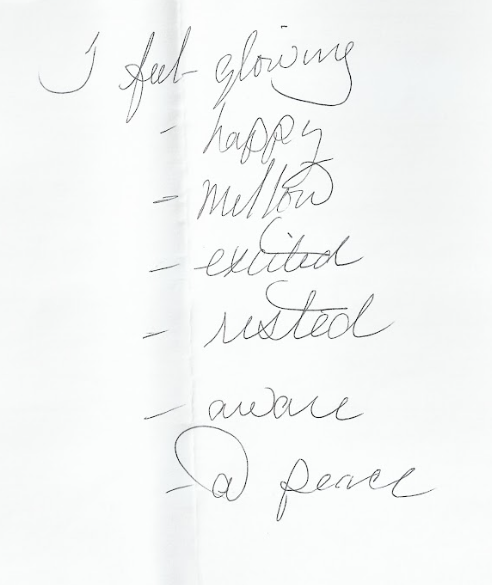 I feel glowing
- happy
- mellow
- excited
- rested
- aware
- @ peace